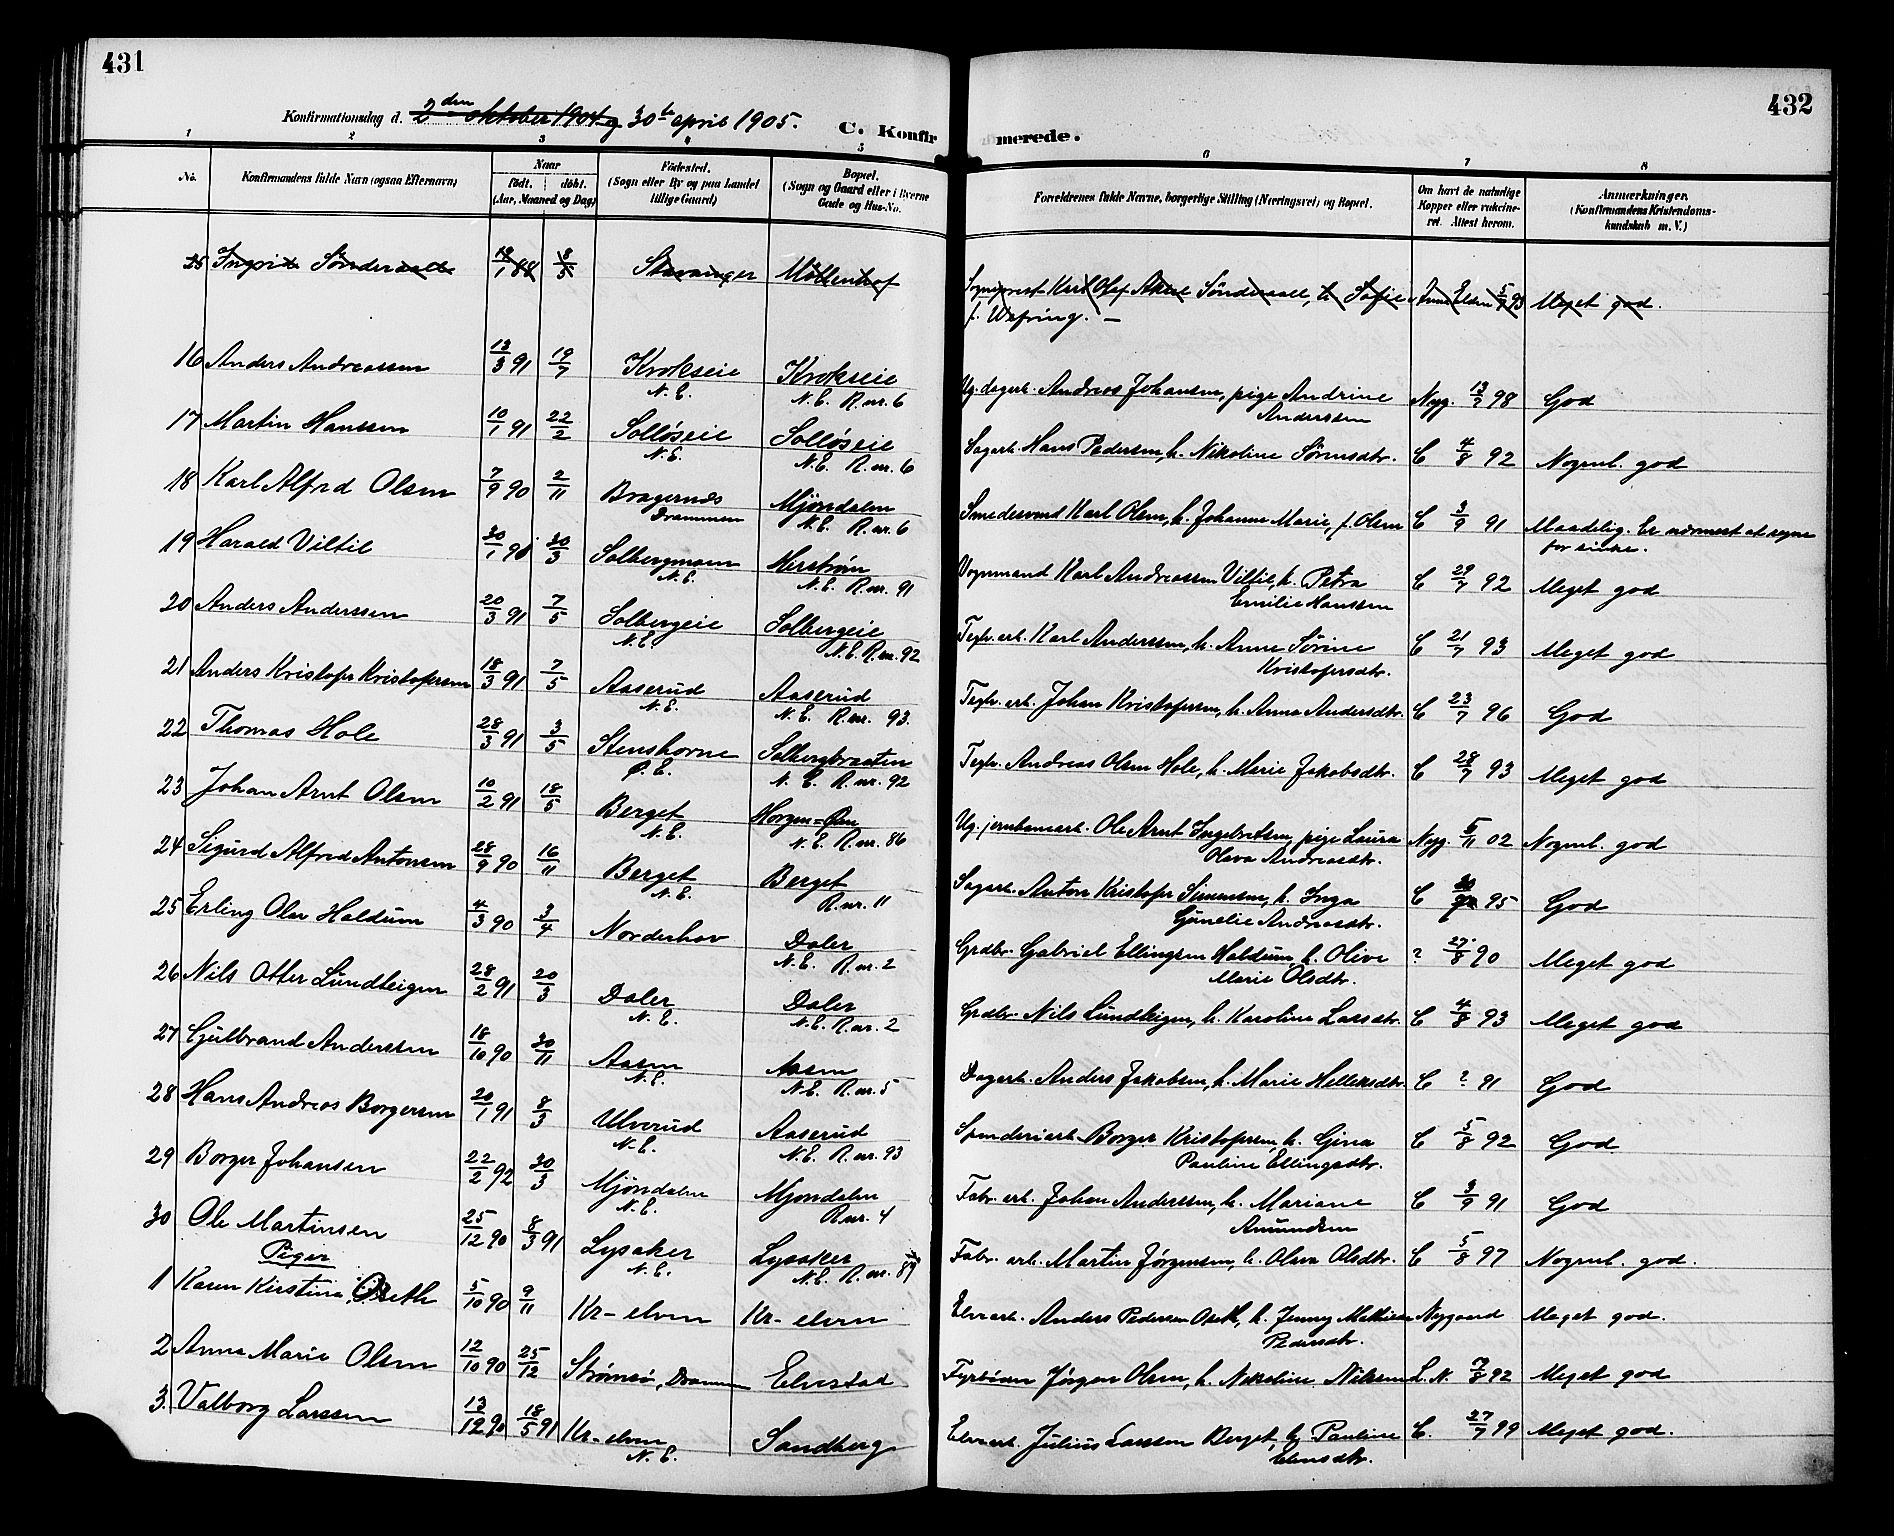 431
Konfirmationsdag d. 2den oktober 1904 og 30te april 1905.
C. Konfir
1 2 3 4 5
No.
Konfirmandens fulde Navn (ogsaa Efternavn)
Naar
født. døbt.
(Aar, Maaned og Dag)
Fødested.
(Sogn eller By og paa Landet
tillige Gaard)
Bopæl.
(Sogn og Gaard eller i Byerne
Gade og Hus-No.
25 Ingrid Sønderaall 88 8/5 Stavanger Möllenhof
16 Anders Andreassen 13/3 91 19/7 Krokseie Krokseie
N.E. N.E. R.nr. 6
17 Martin Hanssen 10/1 91 22/2 Solløseie Solløseie
N.E. N.E. R.nr. 6
18 Karl Alfred Olsen 7/9 90 2/11 Bragernæs Mjøndalen
Drammen N.E. R.nr. 6
19 Harald Viltil 30/1 90 30/3 Solbergmoen Herstrøm
N.E. N.E. R.nr. 91
20 Anders Anderssen 20/3 91 7/5 Solbergeie Solbergeie
N.E. N.E. R.nr. 92
21 Anders Kristofer Kristofersen 18/3 91 7/5 Aaserud Aaserud
N.E. N.E. R.nr. 93.
22 Thomas Hole 28/3 91 3/5 Stenshorne Solbergbraaten
Ø.E. N.E. R.nr. 92
23 Johan Arnt Olsen 10/2 91 18/5 Berget Horgen=Øen
N.E. N.E. R.nr. 86
24 Sigurd Alfred Antonsen 28/9 90 16/11 Berget Berget
N.E. R.nr. 11
25 Erling Olav Haldum 4/3 90 3/4 Norderhov Daler
N.E. R.nr. 2
26 Nils Otter Lundteigen 28/2 91 20/3 Daler Daler
N.E. N.E. R.nr. 2
27 Gulbrand Anderssen 18/10 90 30/11 Aasen Aasen
N.E. N.E. R.nr. 5
28 Hans Andreas Borgersen 20/1 91 8/3 Ulverud Aaserud
N.E. N.E. R.nr. 93
29 Borger Johansen 22/2 92 30/3 Mjøndalen Mjøndalen
N.E. R.nr. 4
30 Ole Martinsen 25/12 90 8/3 91 Lysaker Lysaker
N.E. N.E. R.nr. 89
Piger
1 Karen Kirstine Oseth 5/10 90 9/11 Kr-elven Kr-elven
2 Anna Marie Olsen 12/10 90 25/12 Strømsø, Drammen Elvestad
3. Valborg Larssen 13/12 90 18/5 91 Kr-elven Sandberg
N.E.
432
merede.
6 7 8
Forældrenes fulde Navne, borgerlige Stilling (Næringsvei) og Bopæl.
Om havt de naturlige
Kopper eller vakcine-
ret. Attest herom.
Anmærkninger.
(Konfirmandens Kristendoms-
kundskab m. V.)
Sogneprest Karl Olaf Aksel Sønderaall, h. Sofie 93 Meget god.
f. Wefring. —
Ug. dagarb. Andreas Johansen, pige Andrine Nyg. 13/7 98 God
Anderssen
Sagarb. Hans Pedersen, h. Nikoline Sørensdtr. C 4/8 92 Nogenl. god
Smedesvend Karl Olsen, h. Johanne Marie, f. Olsen C 3/9 91 Maadelig. Er nærmest at regne
for sinke.
Vognmand Karl Andreassen Viltil, h. Petra C 29/7 92 Meget god
Emilie Hanssen
Teglv. arb. Karl Anderssen, h. Anne Sørine C 21/7 93 Meget god
Kristofersdtr.
Teglv. arb. Johan Kristofersen, h. Anna Andersdtr. C 23/7 96 God
Teglv. Andreas Olsen Hole, h. Marie Jakobsdtr. C 28/7 93 Meget god
Ug. jernbanearb. Ole Arnt Ingebretsen, pige Laura Nyg. 5/11 02 Nogenl. god
Oleva Andreasdtr.
Sagarb. Anton Kristofer Simensen, h. Inga C 95 God
Gunelie Andreasdtr.
Grdbr. Gabriel Ellingsen Haldum, h. Olive ? 27/8 90 Meget god
Marie Olsdtr.
Grdbr. Nils Lundteigen, h. Karoline Larsdtr. C 4/8 93 Meget god
Dagarb. Anders Jakobsen, h. Marie Helleksdtr. C ? 91 God
Spinderiarb. Borger Kristofersen, h. Gina C 5/8 92 God
Pauline Ellingsdtr.
Fabr. arb. Johan Anderssen, h. Mariane C 3/9 91 God
Amundsen
Fabr. arb. Martin Jørgensen, h. Olava Olsdtr. C 5/8 97 Nogenl. god.
Elvearb. Anders Pedersen Oseth, h. Jenny Mathilde Nygaard Meget god.
Pedersdtr.
Fyrbøder Jørgen Olsen, h. Nikoline Nilssen L.N. 7/8 92 Meget god
Elvearb. Julius Larssen Berget, h. Pauline C. 27/7 99 Meget god.